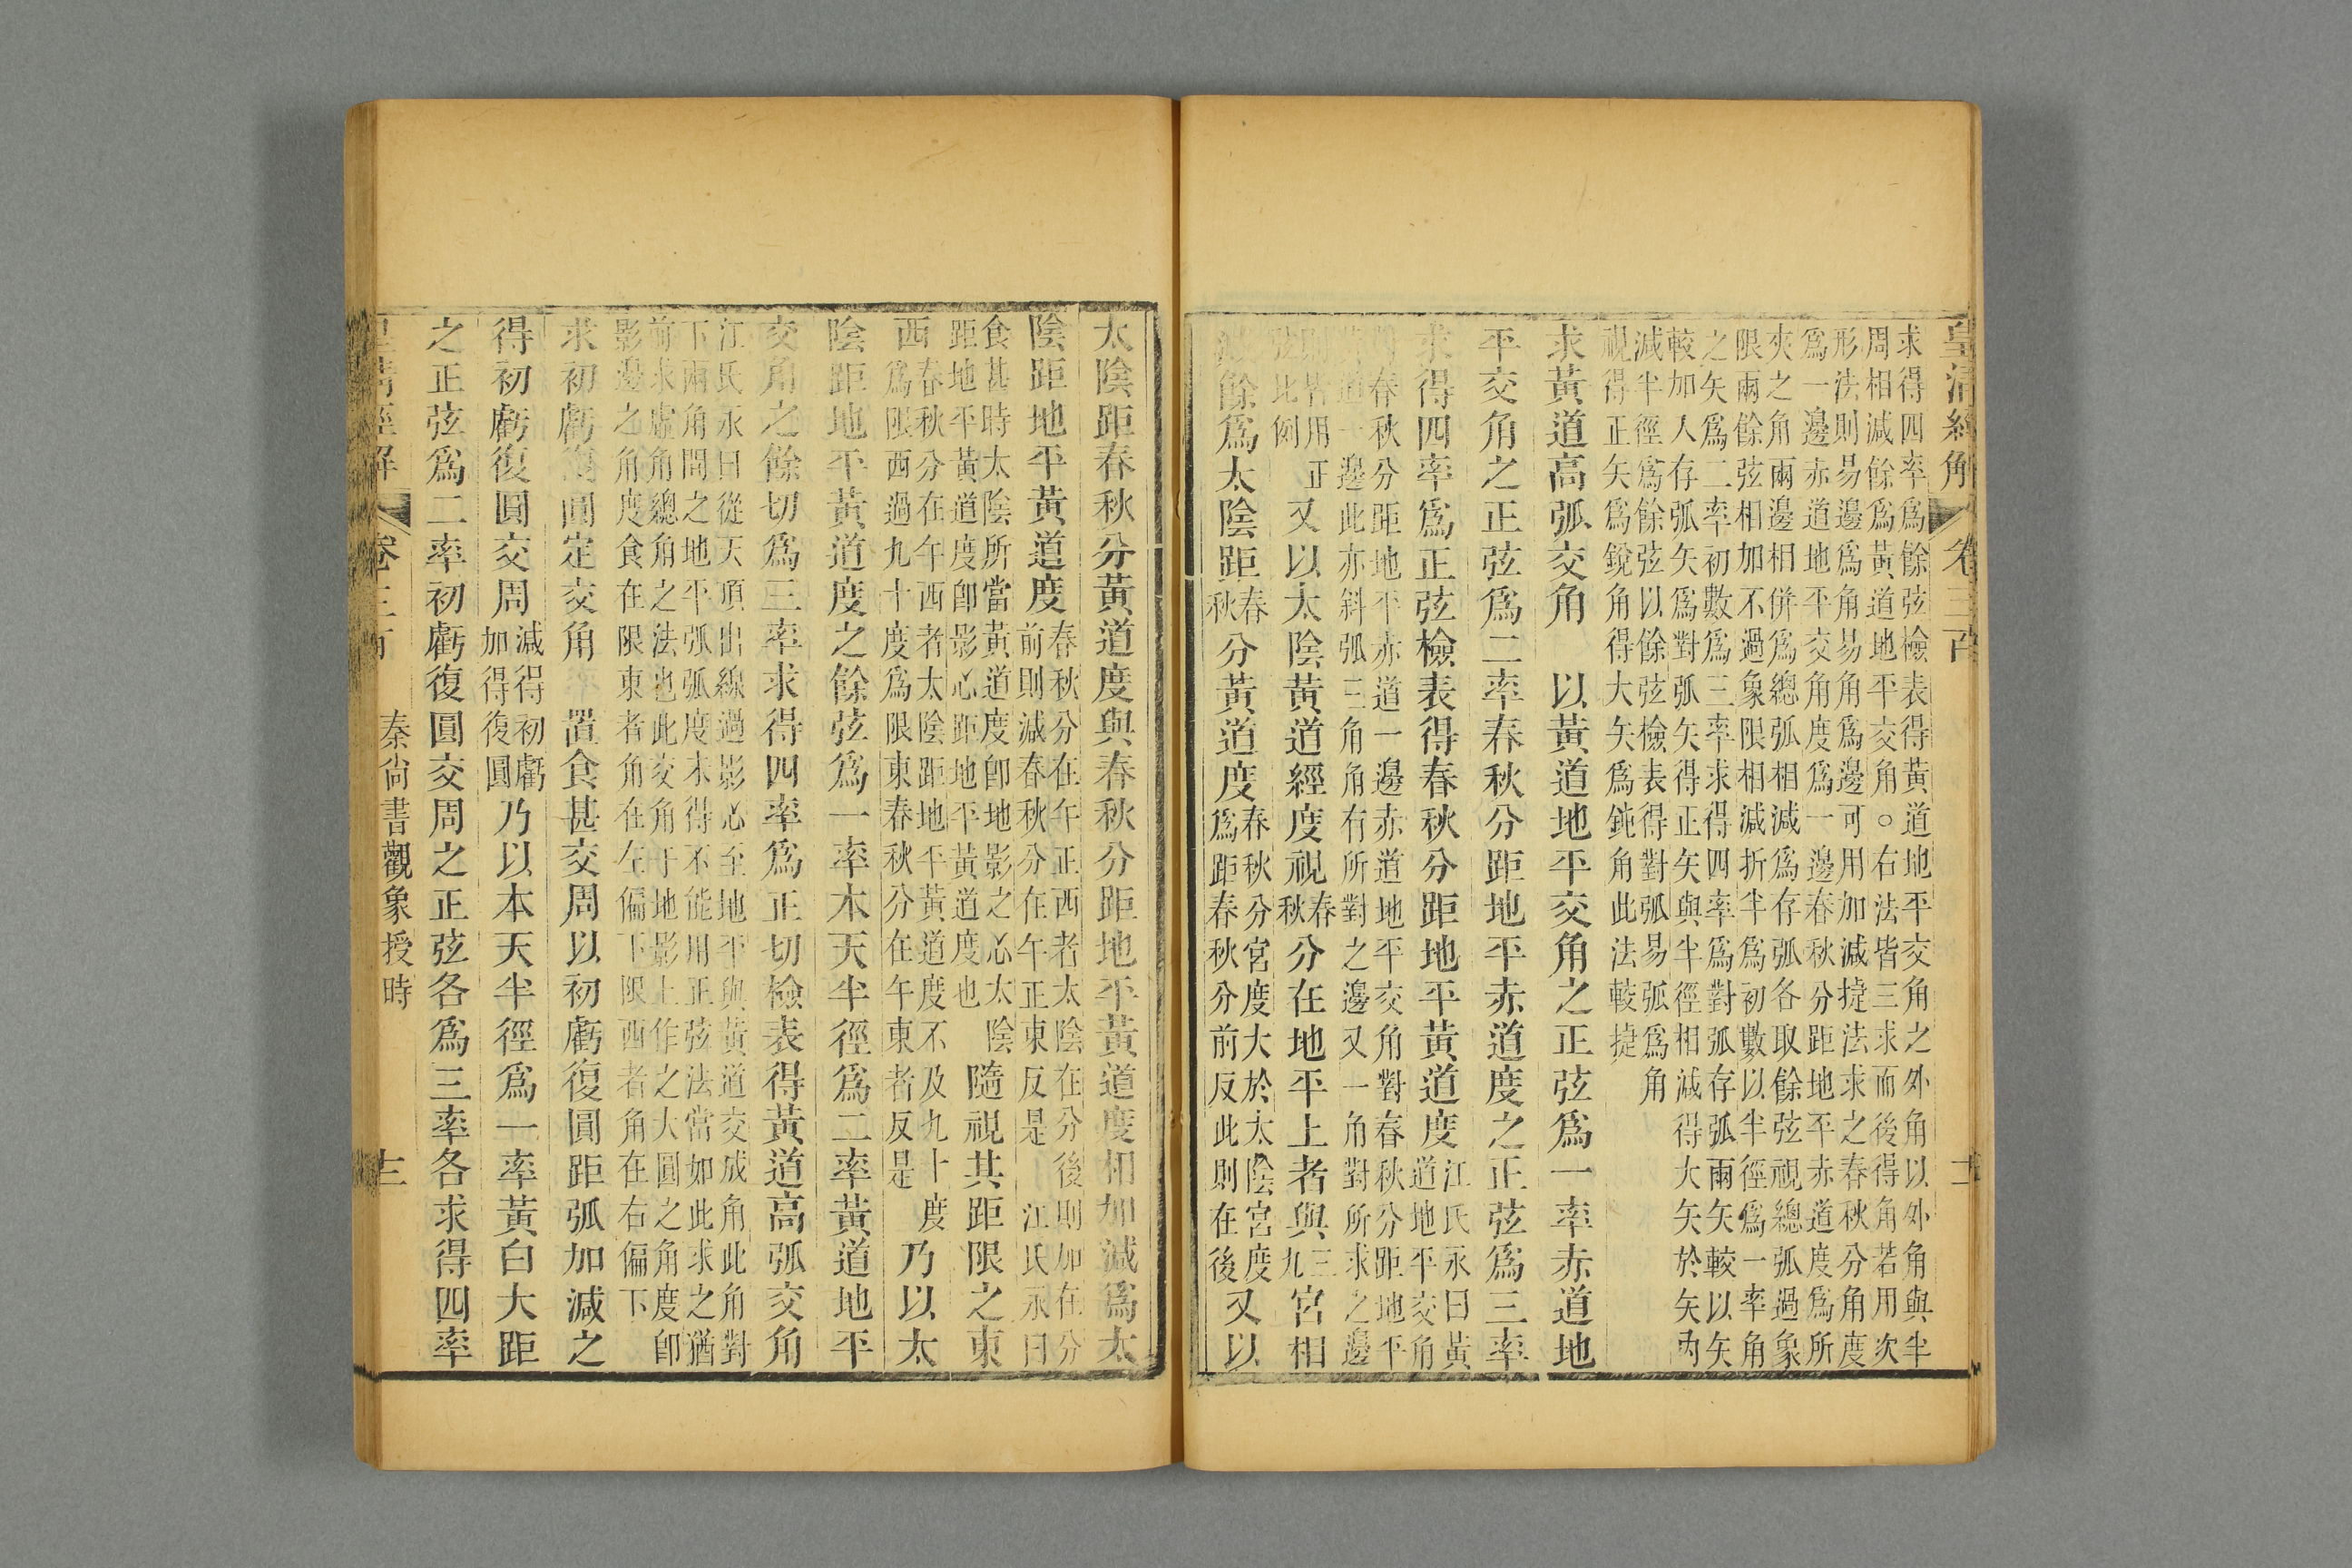 皇清經解 卷三百 十二
求得四率爲餘弦檢表得黃道地平交角之外角以外角與半
周相減餘爲黃道地平交角○右法皆三求而後得角若用次
形法則易邊爲角易角爲邊可用加減捷法求之春秋分角度
爲一邊赤道地平交角度爲一邊春秋分距地平赤道度爲所
夾之角兩邊相併爲總弧相減爲存弧各取餘弦視總弧過象
限兩餘弦相加不過象限相減折半爲初數以半徑爲一率角
之矢爲二率初數爲三率求得四率爲對弧存弧兩矢較以矢
較加人存弧矢爲對弧矢得正矢與半徑相減得大矢於矢內
減半徑爲餘弦以餘弦檢表得對弧易弧爲角
視得正矢爲銳角得大矢爲鈍角此法較捷
求黃道高弧交角 以黃道地平交角之正弦爲一率赤道地
平交角之正弦爲二率春秋分距地平赤道度之正弦爲三率
求得四率爲正弦檢表得春秋分距地平黃道度江氏永曰黃
道地平交角
對春秋分距地平赤道一邊赤道地平交角對春秋分距地平
黃道一邊此亦斜弧三角角有所對之邊又一角對所求之邊
用正
比例又以太陰黃道經度視春秋分在地平上者與三九宮相
減餘爲太陰距春秋分黃道度春秋分宮度大於太陰宮度
爲距春秋分前反此則在後又以
太陰距春秋分黃道度與春秋分距地平黃道度相加減爲太
陰距地平黃道度春秋分在午正西者太陰在分後則加在分
前則減春秋分在午正東反是 江氏永曰
食甚時太陰所當黃道度卽地影之心太陰
距地平黃道度卽影心距地平黃道度也隨視其距限之東
西春秋分在午西者太陰距地平黃道度不及九十度
爲限西過九十度爲限東春秋分在午東者反是乃以太
陰距地平黃道度之餘弦爲一率本天半徑爲二率黃道地平
交角之餘切爲三率求得四率爲正切檢表得黃道高弧交角
江氏永曰從天頂出線過影心至地平與黃道交成角此角對
下兩角間之地平弧弧度未得不能用正弦法當如此求之猶
前求虛角總角之法也此交角于地影上作之大圓之角度卽
影邊之角度食在限東者角在左偏下限西者角在右偏下
求初虧復圓定交角 置食甚交周以初虧復圓距弧加減之
得初虧復圓交周減得初虧
加得復圓乃以本天半徑爲一率黃白大距
之正弦爲二率初虧復圓交周之正弦各爲三率各求得四率
皇清經解 卷三百 秦尚書觀象授時 十三